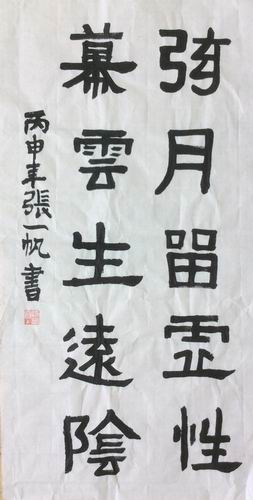 弦月留霊性
幕雲生遠陰
丙申年張一帆書